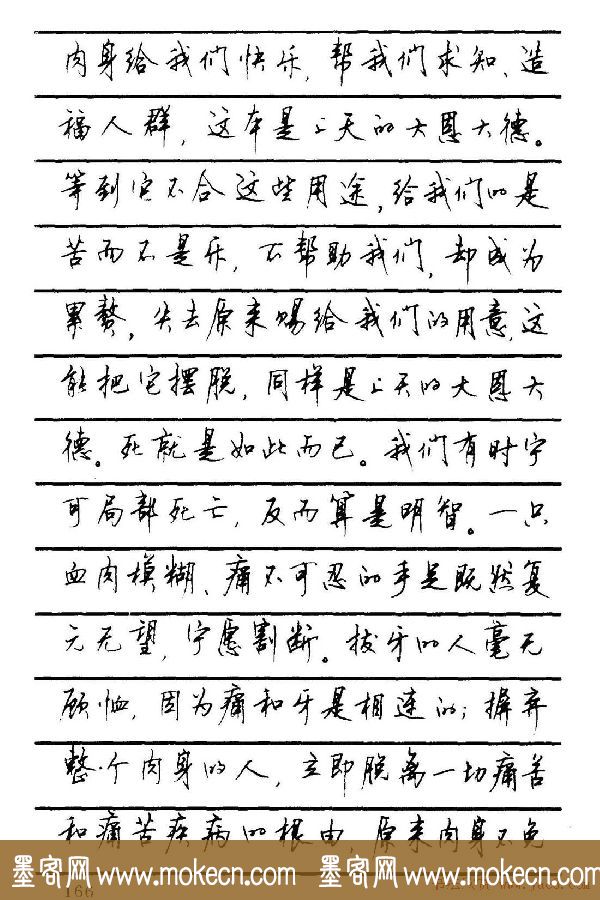 肉身给我们快乐，帮我们求知、造
福人群，这本是上天的大恩大德。
等到它不合这些用途，给我们的是
苦而不是乐，不帮助我们，却成为
累赘，失去原来赐给我们的用意，这
能把它摆脱，同样是上天的大恩大
德。死就是如此而已。我们有时宁
可局部死亡，反而算是明智。一只
血肉模糊、痛不可忍的手足既然复
元无望，宁愿割断。拔牙的人毫无
顾恤，因为痛和牙是相连的；摒弃
整个肉身的人，立即脱离一切痛苦
和痛苦疾病的根由，原来肉身不免
墨客网 www.mokecn.com 墨客网 www.mokecn.com
166